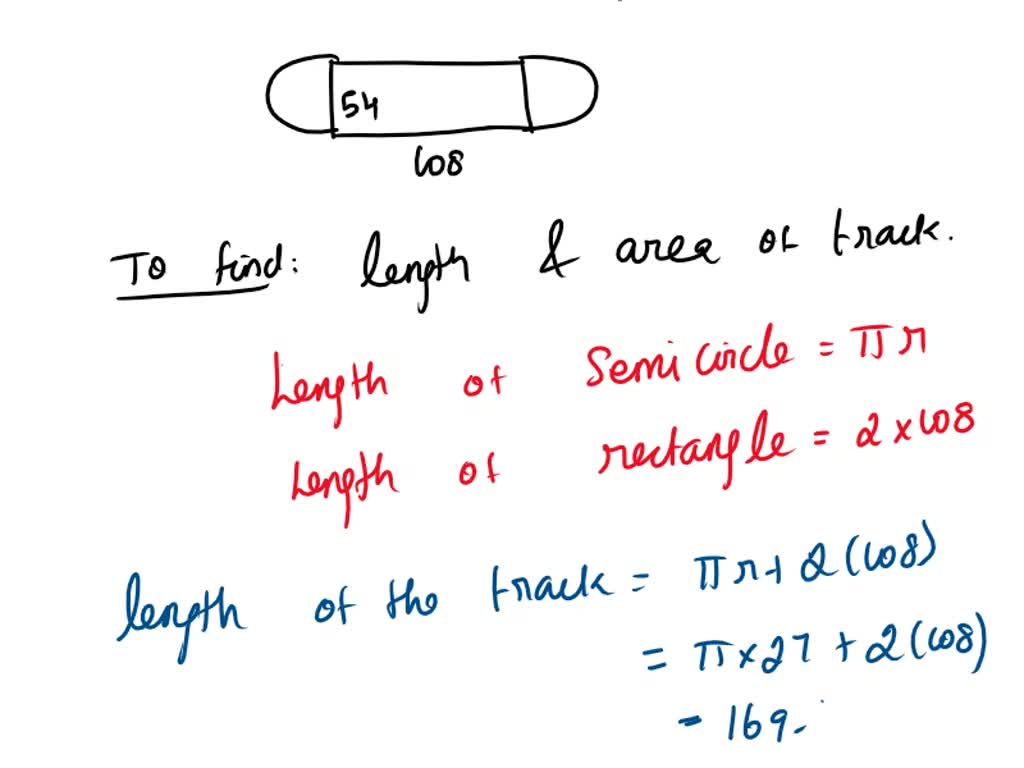 54
108
To find: length & area of track.
Length of Semi circle = πr
Length of rectangle = 2 x 108
length of the track = πr + 2(108)
= π x 27 + 2(108)
= 169.